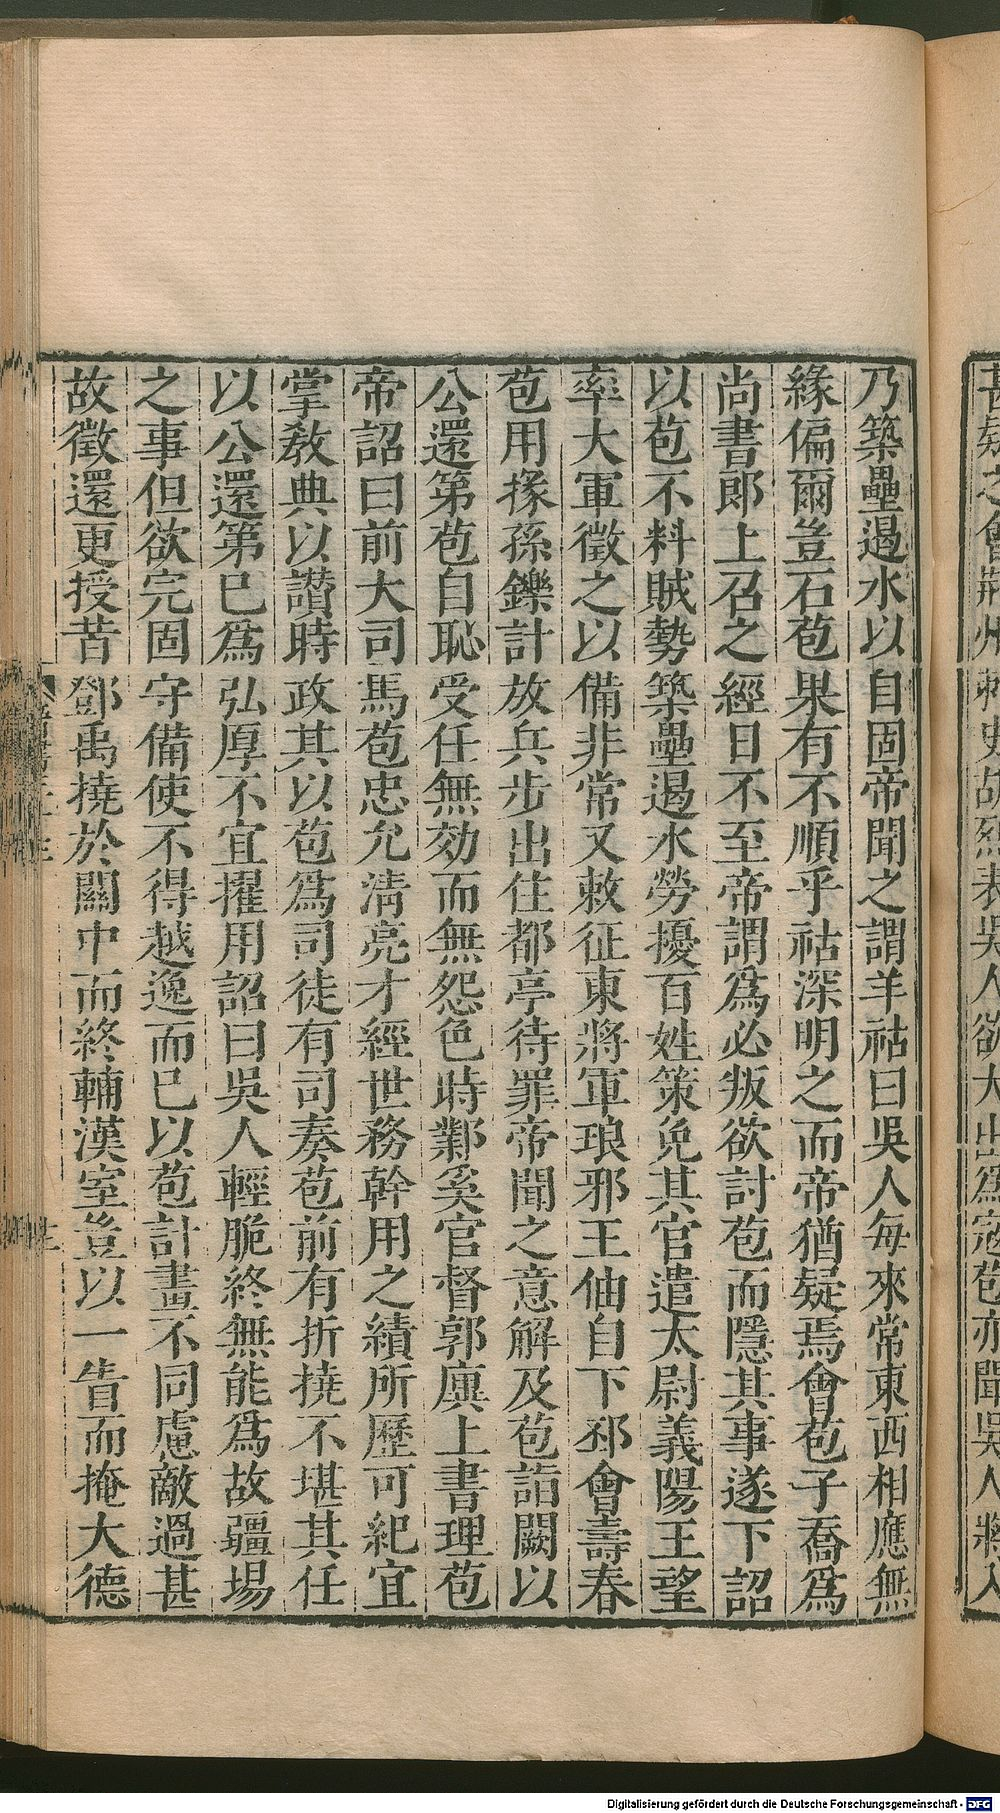 乃築壘遏水以自固帝聞之謂羊祜曰吳人每來常東西相應無
緣偏爾豈石苞果有不順乎祜深明之而帝猶疑焉會苞子喬爲
尚書郎上召之經日不至帝謂爲必叛欲討苞而隱其事遂下詔
以苞不料賊勢築壘遏水勞擾百姓策免其官遣太尉義陽王望
率大軍徵之以備非常又敕征東將軍琅邪王伷自下邳會壽春
苞用掾孫鑠計放兵步出住都亭待罪帝聞之意解及苞詣闕以
公還第苞自恥受任無効而無怨色時鄴奚官督郭廙上書理苞
帝詔曰前大司馬苞忠允淸亮才經世務幹用之績所歷可紀宜
掌敎典以讃時政其以苞爲司徒有司奏苞前有折撓不堪其任
以公還第已爲弘厚不宜擢用詔曰吳人輕脆終無能爲故疆場
之事但欲完固守備使不得越逸而已以苞計畫不同慮敵過甚
故徵還更授昔鄧禹撓於關中而終輔漢室豈以一眚而掩大德
之會荊州刺史胡烈表吳人欲大出爲寇苞亦聞吳人將入
Digitalisierung gefördert durch die Deutsche Forschungsgemeinschaft - DFG